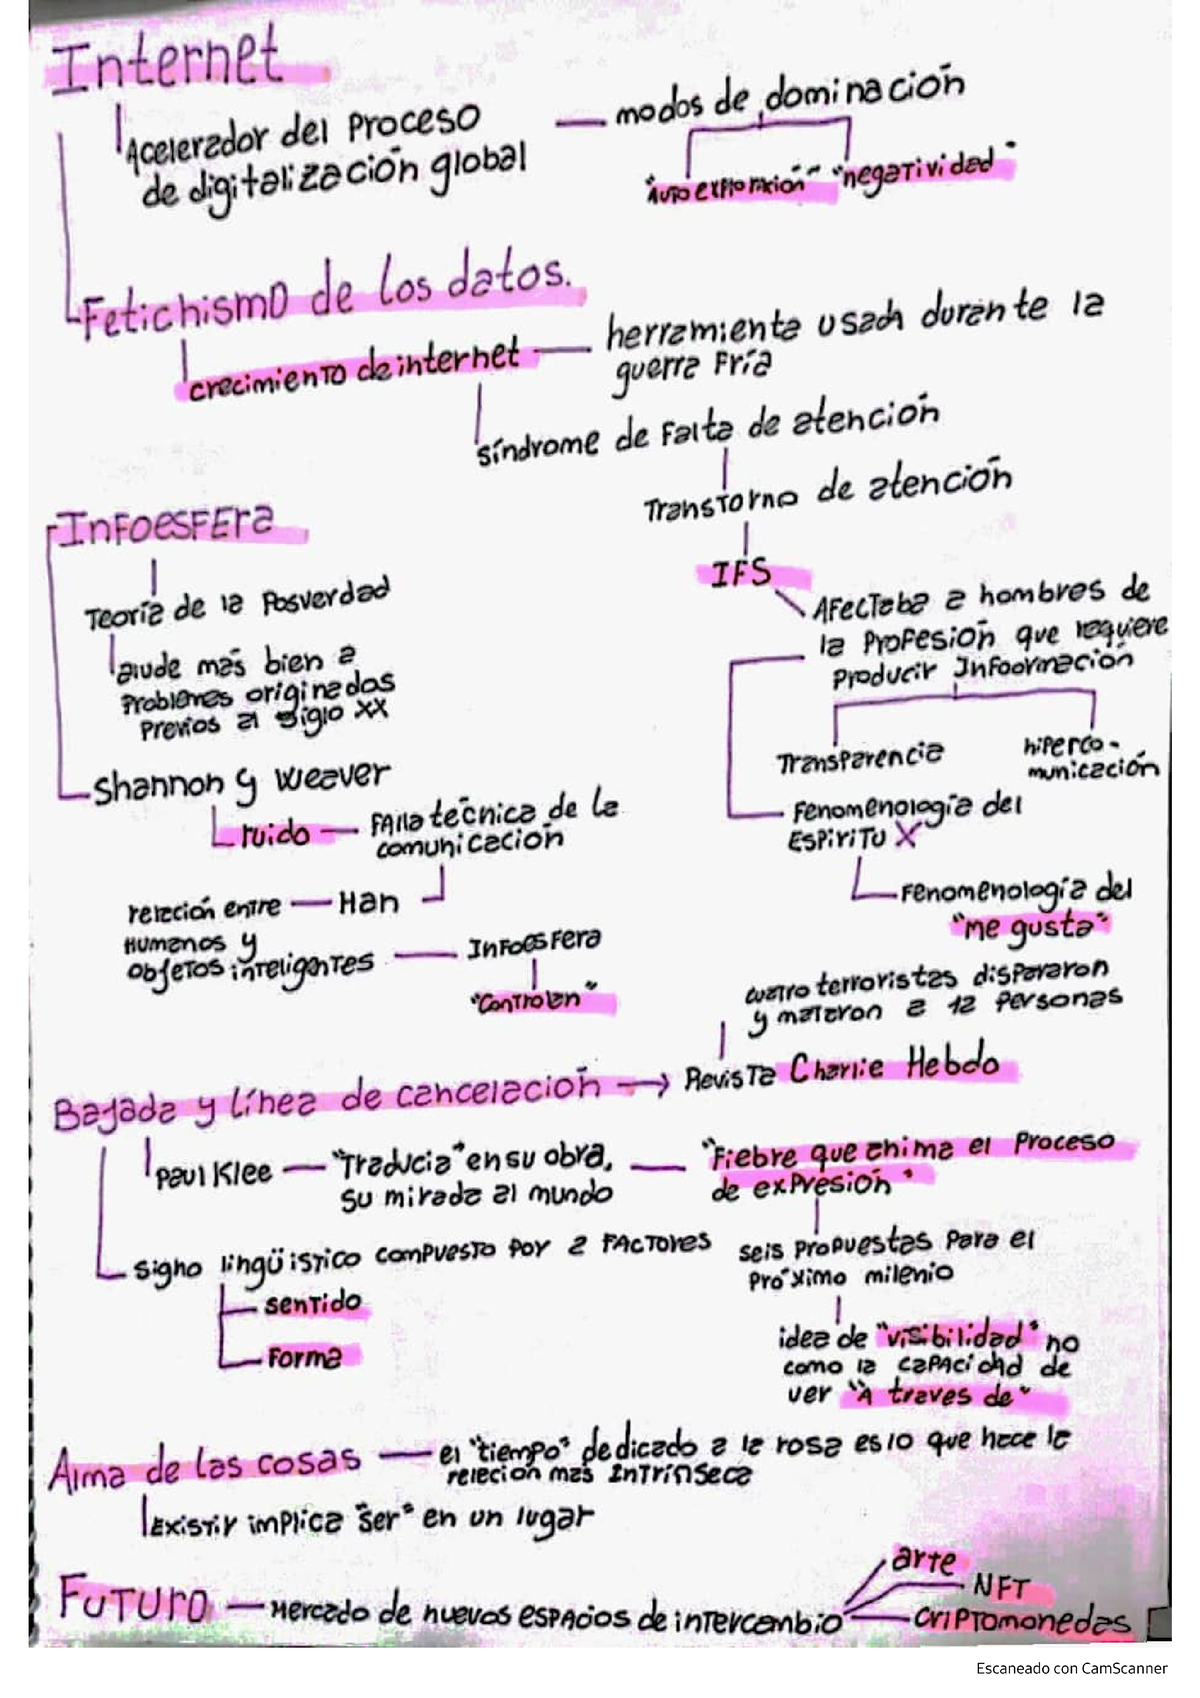 Internet
Acelerador del Proceso
de digitalización global
modos de dominación
"Auto explotación" "negatividad"
Fetichismo de los datos.
crecimiento de internet
herramienta usada durante la
guerra Fría
síndrome de Falta de atención
Transtorno de atención
IFS
Afectaba a hombres de
la Profesión que requiere
Producir Infoormación
Transparencia
hiperco-
municación
Fenomenología del
ESPIRITU X
Fenomenología del
"me gusta"
InFoesFEra
Teoría de la Posverdad
alude más bien a
Problemas originados
Previos al siglo XX
Shannon y Weaver
ruido
Falla técnica de la
comunicación
Han
relación entre
Humanos y
objetos inteligentes
InFoesFera
"Controlan"
cuatro terroristas dispararon
y mataron a 12 Personas
Bajada y línea de cancelación
Revista Charlie Hebdo
Paul Klee
"Traducia" en su obra,
su mirada al mundo
"Fiebre que anima el Proceso
de expresión"
signo lingüístico compuesto por 2 Factores
sentido
Forma
seis Propuestas Para el
Próximo milenio
idea de "visibilidad" no
como la capacidad de
ver "A traves de"
Alma de las cosas
el "tiempo" dedicado a la rosa es lo que hace la
relación más Intrínseca
Existir implica "ser" en un lugar
Futuro
Mercado de nuevos espacios de intercambio
arte
NFT
criptomonedas
Escaneado con CamScanner